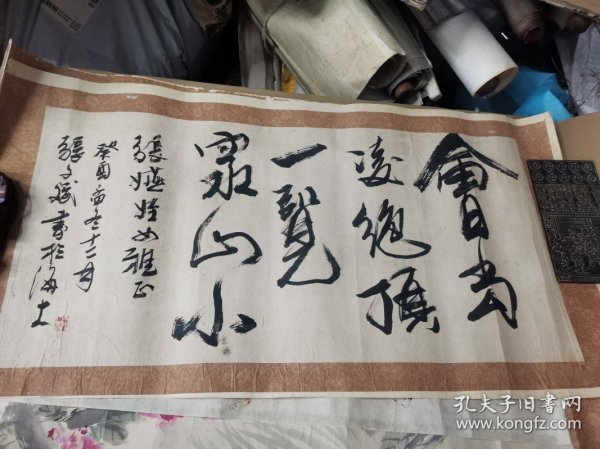 會當
凌絕頂
一覽
眾山小
張嬿娃女雅正
癸酉年冬十二月
張文斌書於海上
孔夫子旧书网
www.kongfz.com